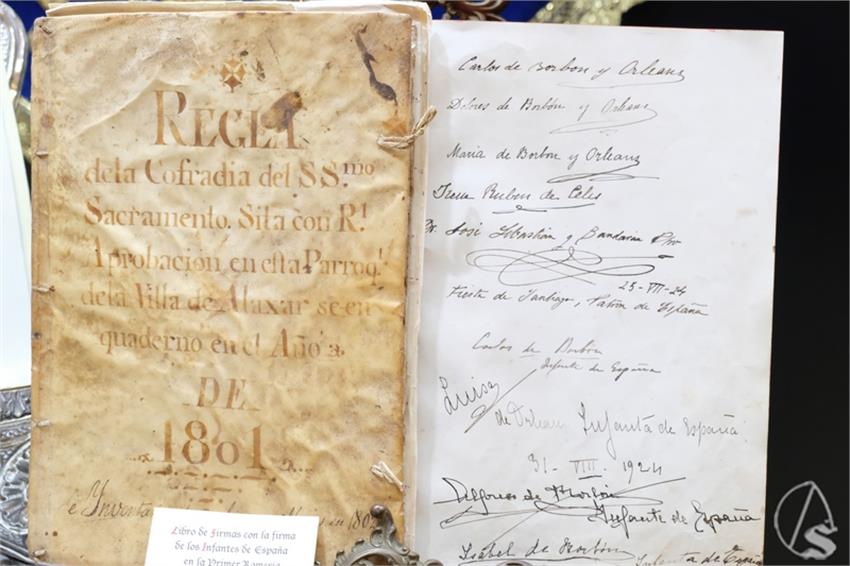 REGLA
dela Cofradia del SS.mo
Sacramento. Sita con R.l
Aprobacion en esta Parroq.l
dela Villa de Alaxar se en
quaderno en el Año
DE
1801
é Inventa
in 180
Libro de Firmas con la firma
de los Infantes de España
en la Primer Romería
Carlos de Borbon y Orleans
Dolores de Borbón y Orleans
Maria de Borbon y Orleans
Irene Rubin de Celis
Dr. José Sebastián y Bandarán Pbro
25-VII-24
Fiesta de Santiago, Patrón de España
Carlos de Borbón
Infante de España
Luisa
de Orleans Infanta de España
31-VIII-1924
Alfonso de Borbón
Infante de España
Isabel de Borbón
Infanta de España